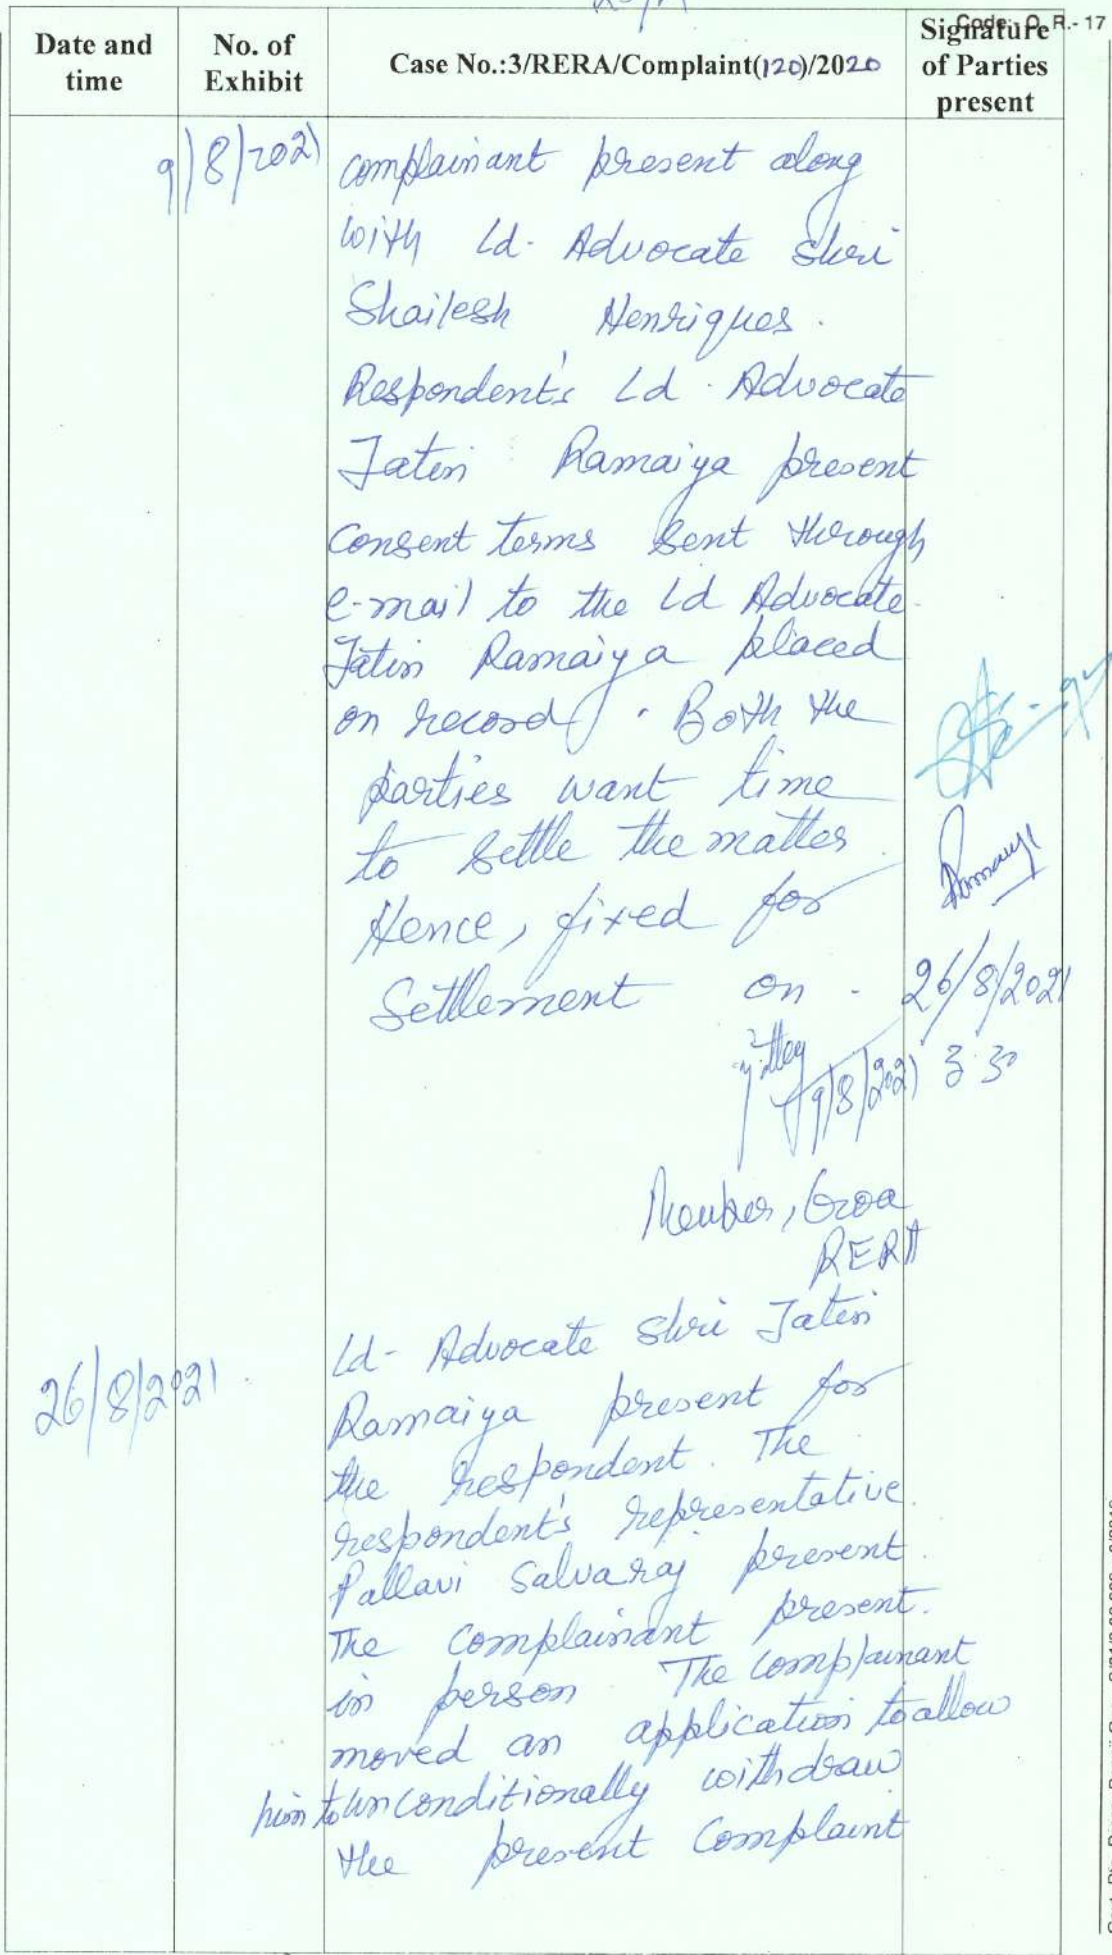 Code:- O. R.- 17
Date and time
No. of Exhibit
Case No.:3/RERA/Complaint(120)/2020
Signature of Parties present
9/8/2021
complainant present along
with Ld. Advocate Shri
Shailesh Henriques.
Respondent's Ld. Advocate
Jatin Ramaiya present
Consent terms sent through
e-mail to the Ld Advocate
Jatin Ramaiya placed
on record. Both the
parties want time
to settle the matter.
Hence, fixed for
Settlement on - 26/8/2021
9/8/2021 3.30
Member, Goa
RERA
26/8/2021.
Ld- Advocate Shri Jatin
Ramaiya present for
the respondent. The
respondent's representative
Pallavi Salvaraj present.
The complainant present.
in person. The complainant
moved an application to allow
him to unconditionally withdraw
the present Complaint